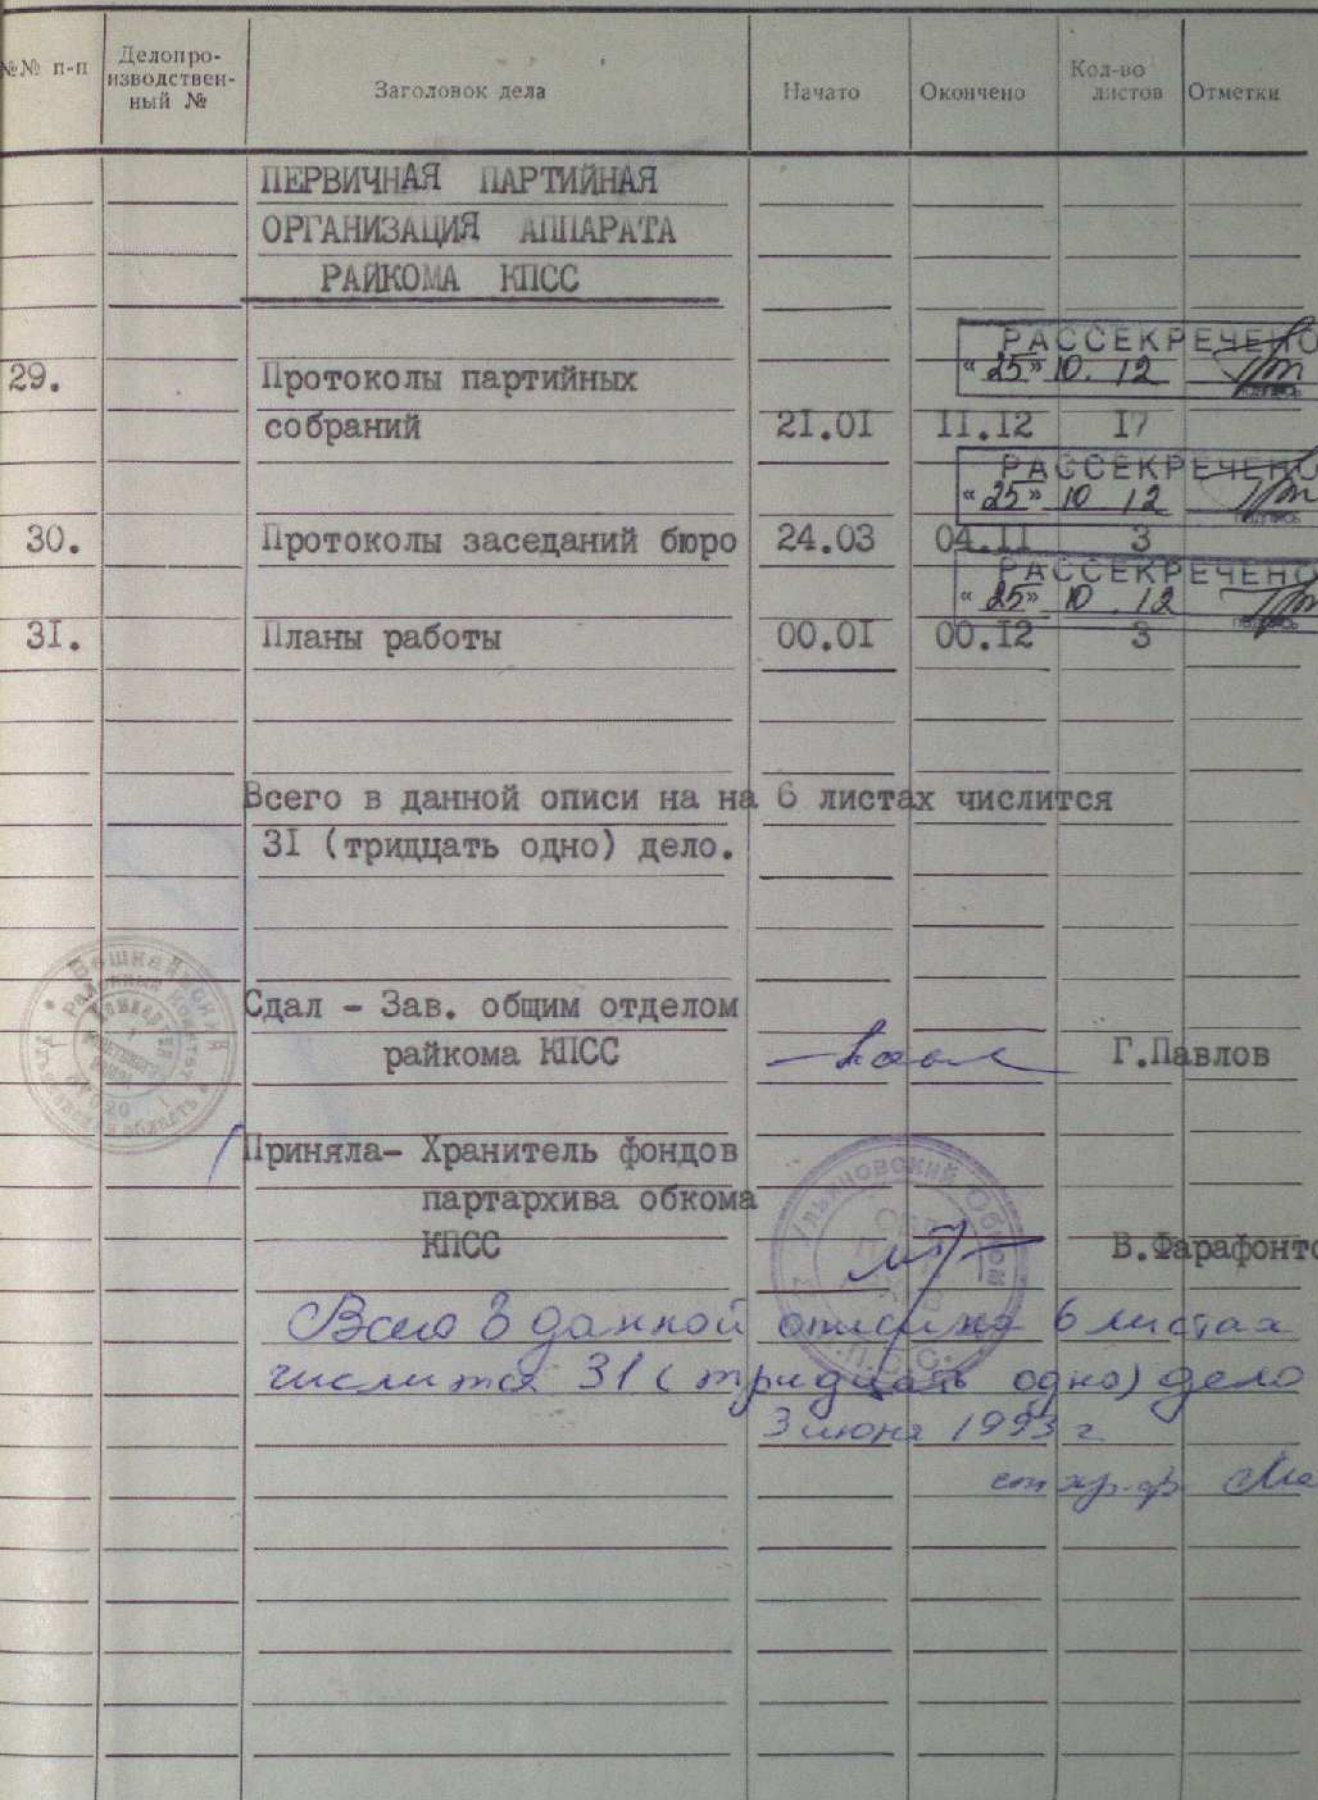 №№ п-п Делопро- изводствен- ный № Заголовок дела Начато Окончено Кол-во листов Отметки
ПЕРВИЧНАЯ ПАРТИЙНАЯ
ОРГАНИЗАЦИЯ АППАРАТА
РАЙКОМА КПСС
РАССЕКРЕЧЕНО
« 25 » 10. 12
подпись
29. Протоколы партийных
собраний 21.01 11.12 17
РАССЕКРЕЧЕНО
« 25 » 10 12
подпись
30. Протоколы заседаний бюро 24.03 04.11 3
РАССЕКРЕЧЕНО
« 25 » 10. 12
подпись
31. Планы работы 00.01 00.12 3
Всего в данной описи на на 6 листах числится
31 (тридцать одно) дело.
Сдал - Зав. общим отделом
райкома КПСС Г.Павлов
Приняла- Хранитель фондов
партархива обкома
КПСС В.Фарафонто
Ульяновский Обком
К.П.С.С.
Всего в данной описи на 6 листах
числится 31 (тридцать одно) дело
3 июня 1993 г.
ст хр.ф